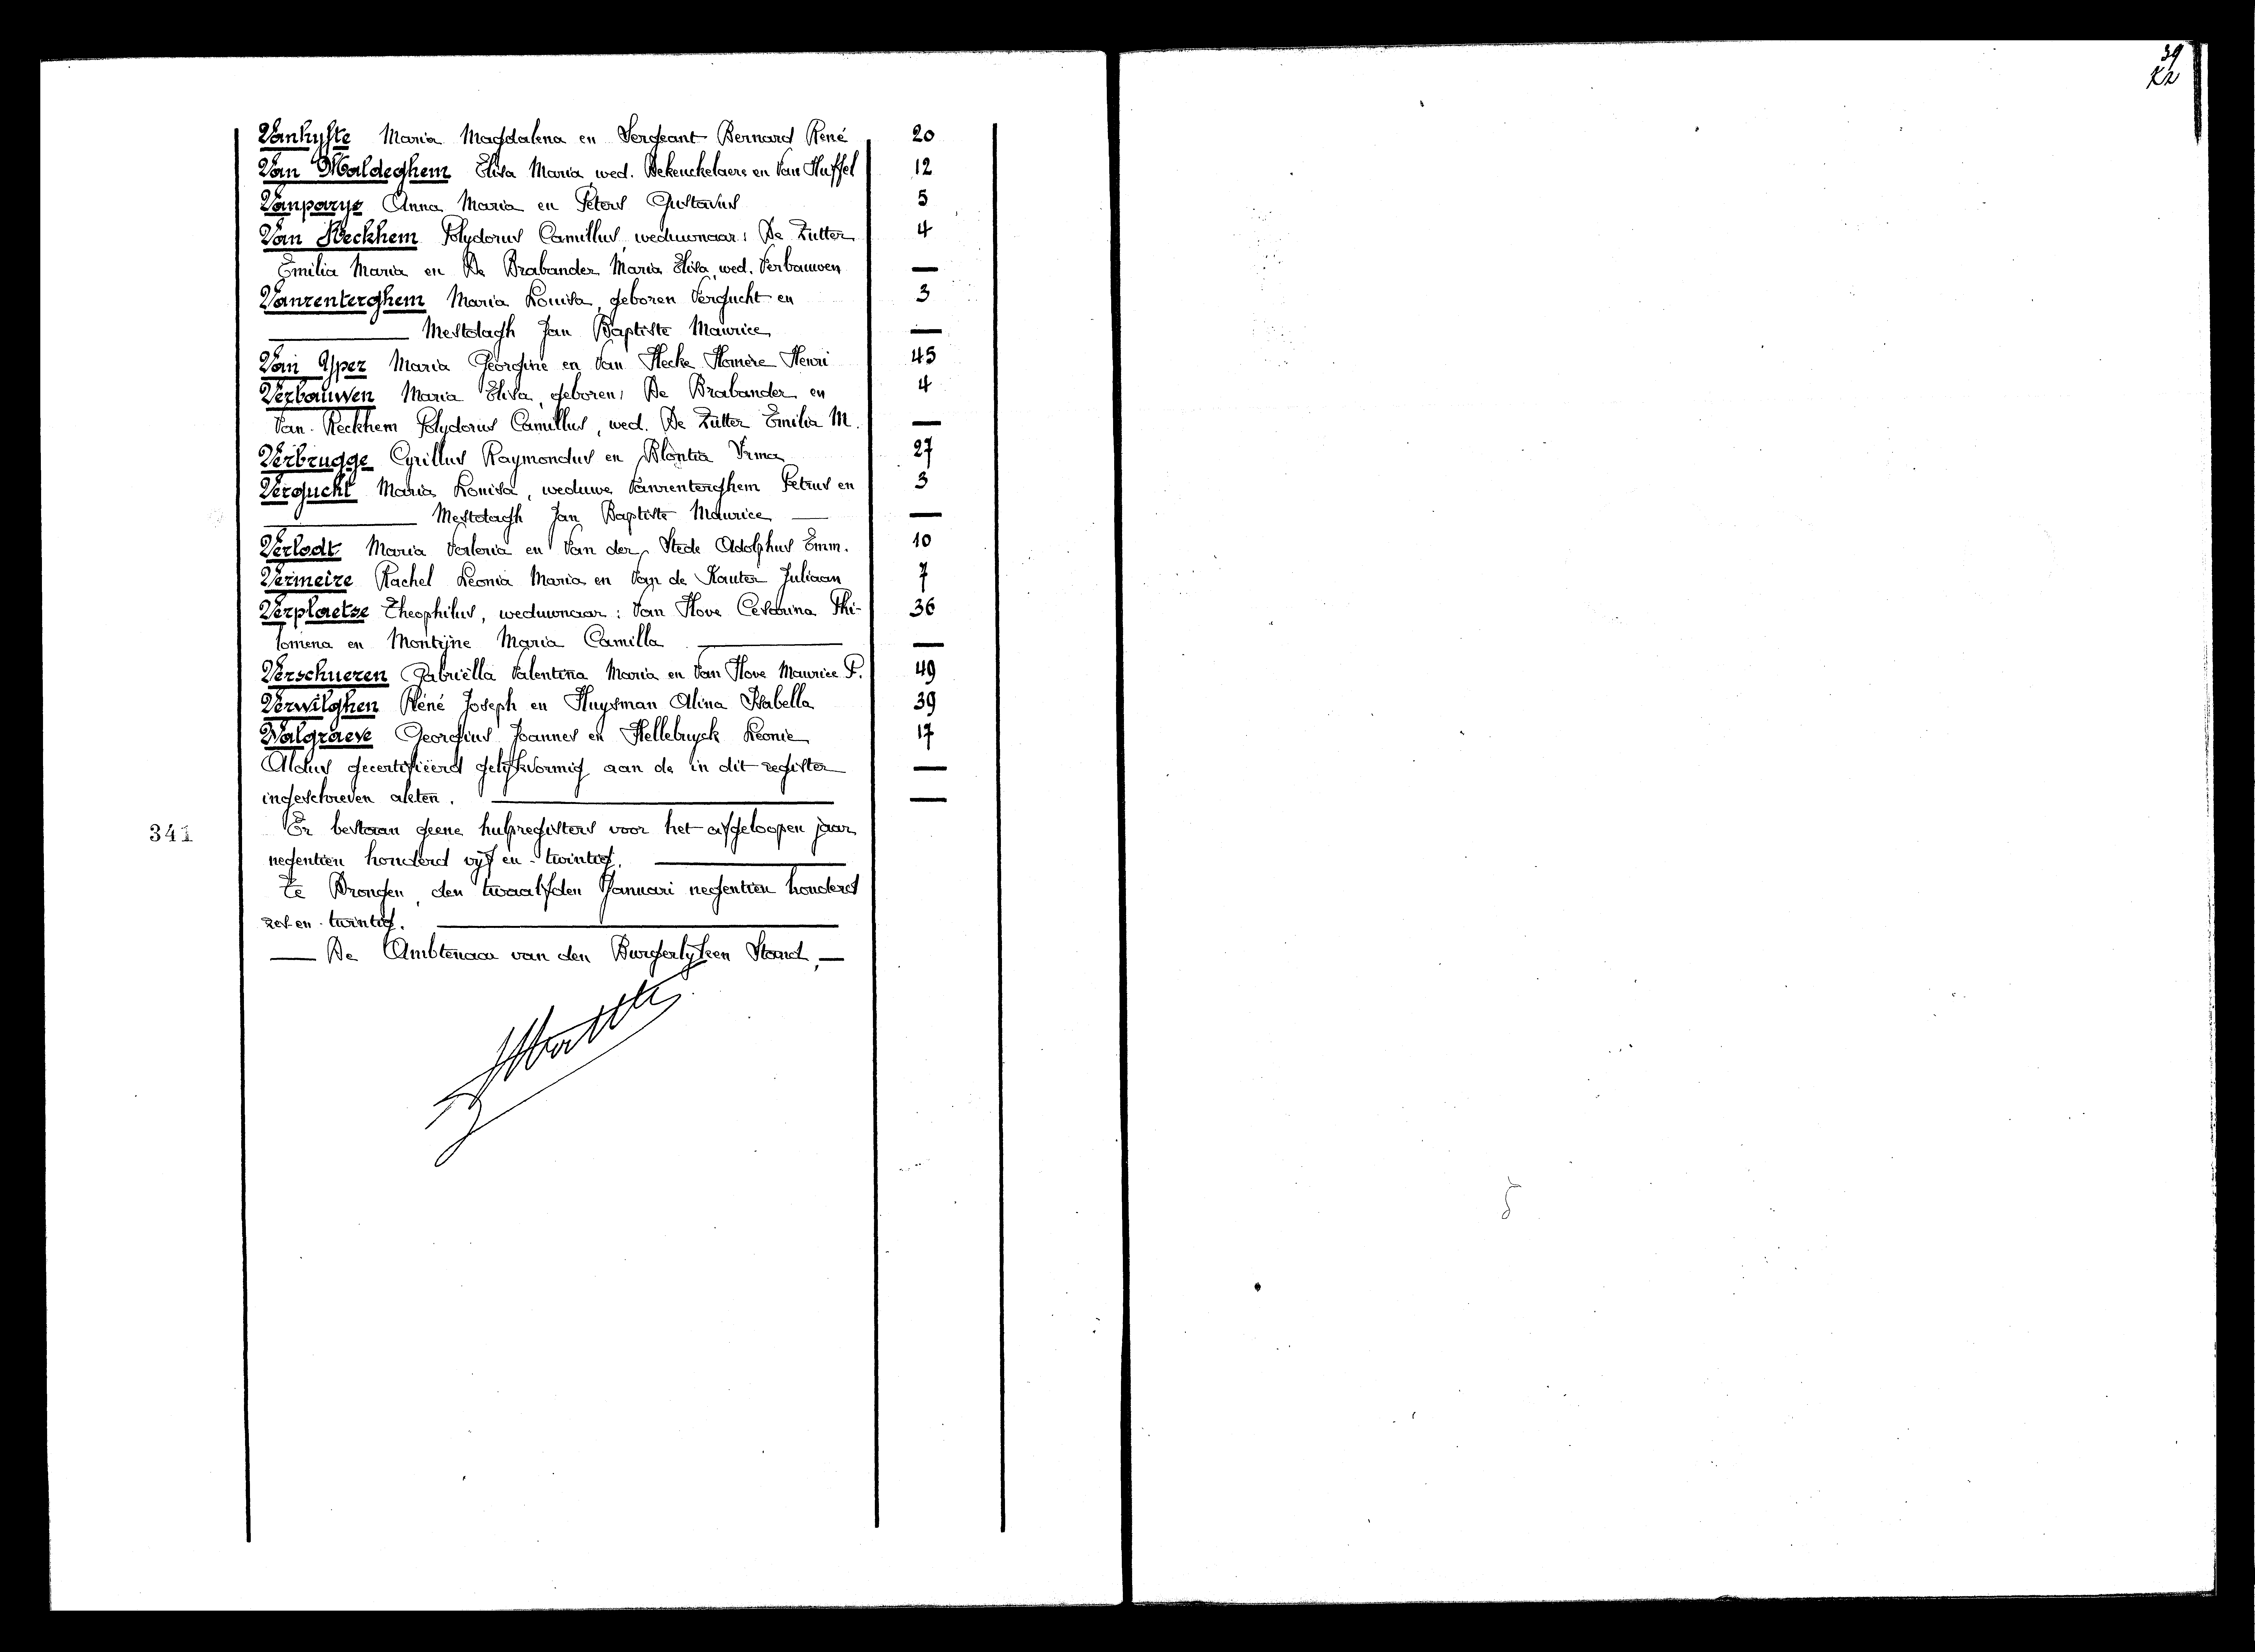 39
Vanhyfte Maria Magdalena en Sergeant Bernard René 20
Van Maldeghem Elisa Maria, wed. Dekeuckelaere en Van Huffel 12
Vanparys Anna Maria en Peters Gustavus 5
Van Reckhem Polydorus Camillus, weduwnaar: De Zutter 4
Emilia Maria en De Brabander Maria Elisa, wed. Verbauwen —
Vanrenterghem Maria Louisa, geboren Vergucht en 3
Mestdagh Jan Baptiste Maurice —
Van Yper Maria Georgine en Van Hecke Homère Henri 45
Verbauwen Maria Elisa, geboren: De Brabander en 4
Van Reckhem Polydorus Camillus, wed. De Zutter Emilia M. —
Verbrugge Cyrillus Raymondus en Blontia Irma 27
Vergucht Maria Louisa, weduwe Vanrenterghem Petrus en 3
Mestdagh Jan Baptiste Maurice — —
Verlodt Maria Valeria en Van der Stede Adolphus Emm. 10
Vermeire Rachel Leonia Maria en Van de Kauter Juliaan 7
Verplaetse Theophilus, weduwnaar: Van Hove Cesarina Phi- 36
lomena en Montijne Maria Camilla —
Verschueren Gabriëlla Valentina Maria en Van Hove Maurice P. 49
Verwilghen Réné Joseph en Huysman Alina Isabella 39
Walgraeve Georgius Joannes en Hellebuyck Leonie 17
Aldus gecertifiëerd gelijkvormig aan de in dit register —
ingeschreven akten. —
341 Er bestaan geene hulpregisters voor het afgeloopen jaar
negentien honderd vijf en twintig.
Te Drongen, den twaalfden Januari negentien honderd
zes en twintig.
— De Ambtenaar van den Burgerlijken Stand, —